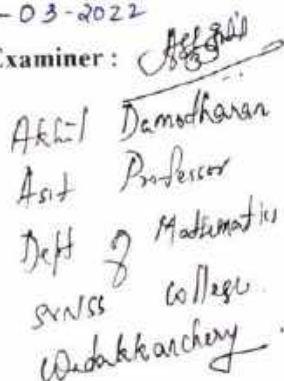 -03-2022
Examiner :
Akhil Damodharan
Asst Professor
Dept of Mathematics
College.
Wadakkanchery.